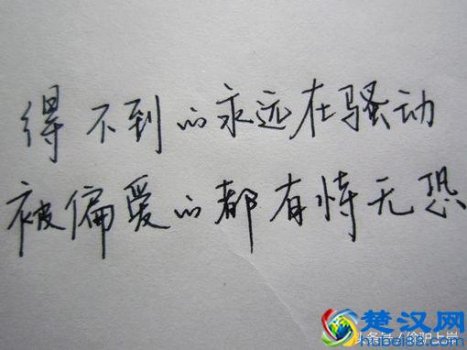 得不到的永远在骚动
被偏爱的都有恃无恐
楚汉网
hubei88.com